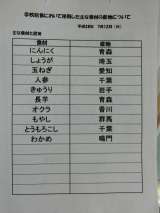 学校給食において使用した主な食材の産地について
平成28年 7月12日（火）
主な食材と産地
食材 産地
にんにく 青森
しょうが 埼玉
玉ねぎ 愛知
人参 千葉
きゅうり 岩手
長芋 青森
オクラ 香川
もやし 群馬
とうもろこし 千葉
わかめ 鳴門